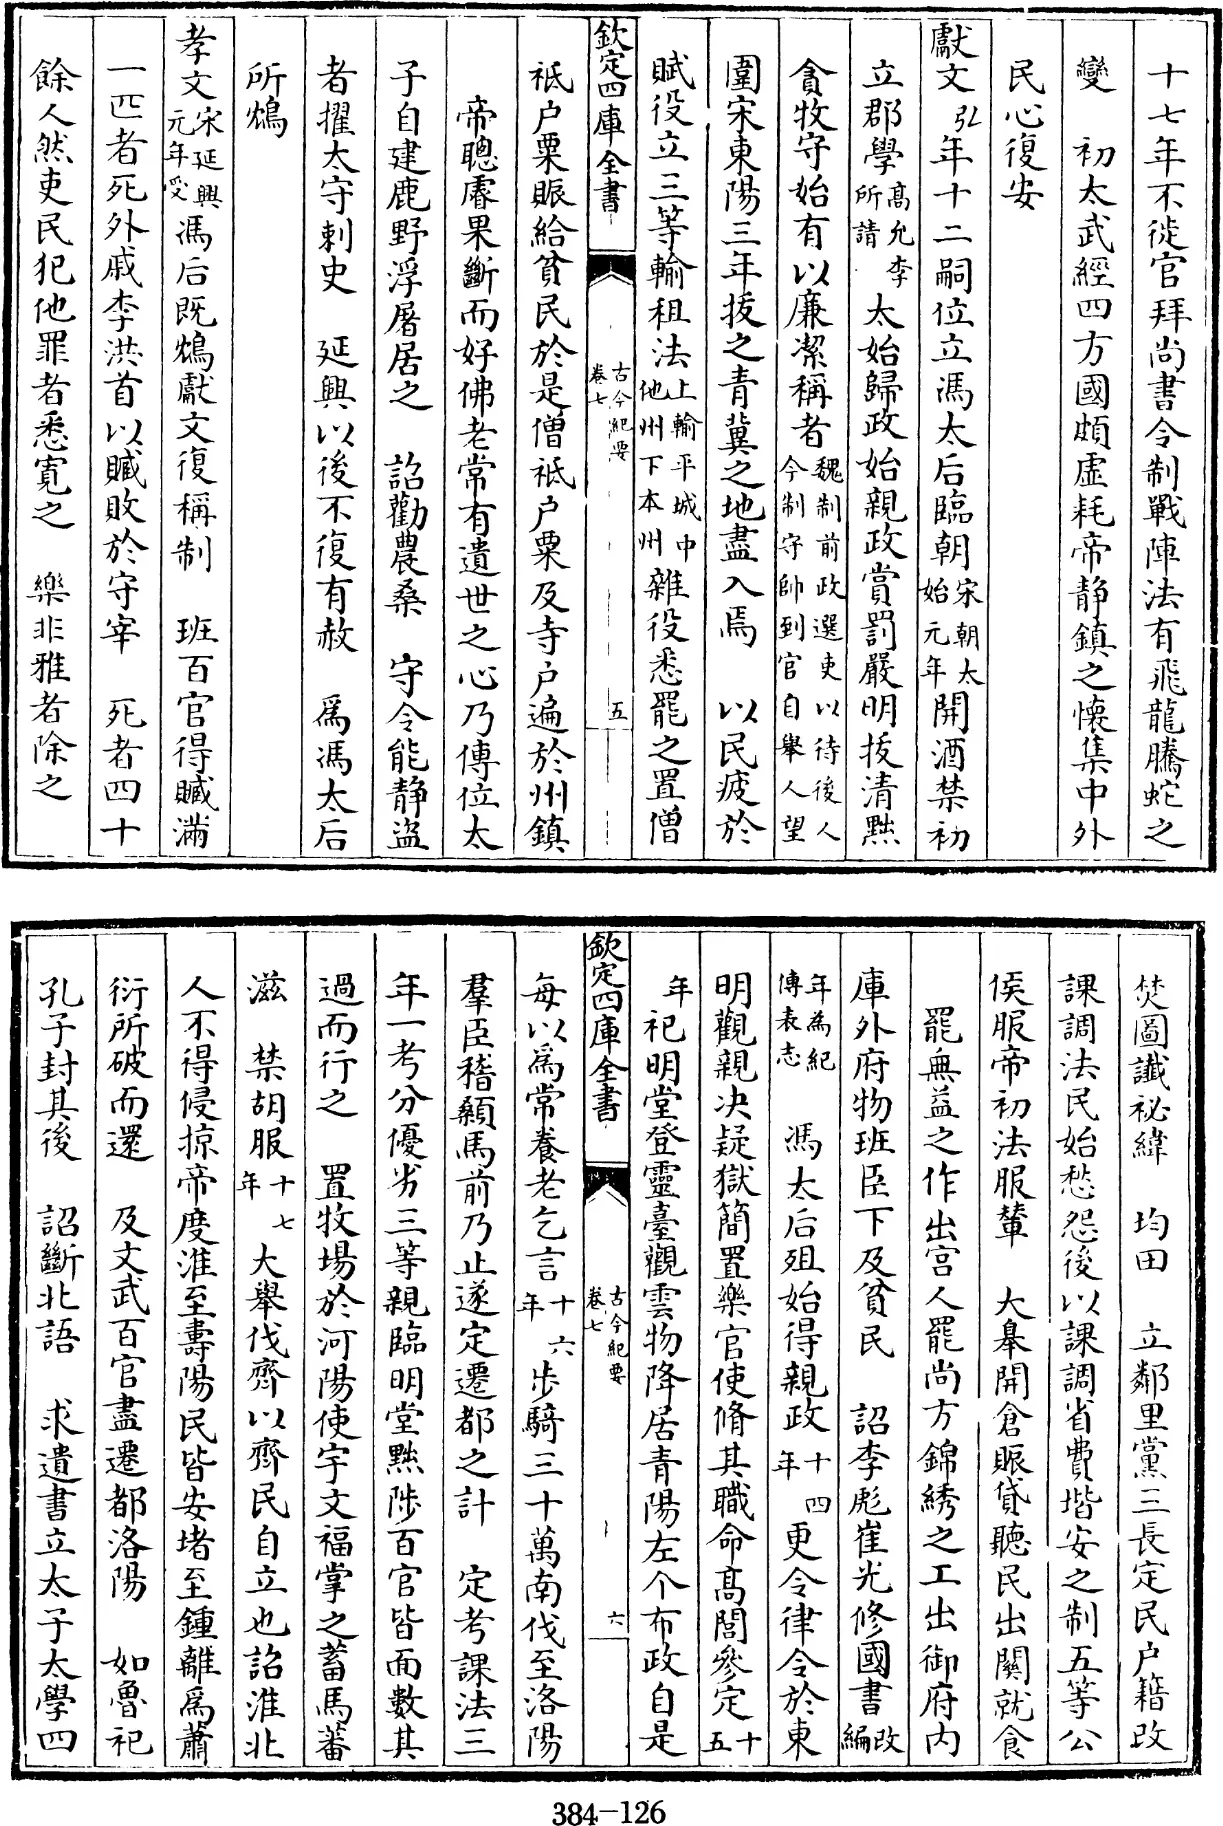 十七年不徙官拜尚書令制戰陣法有飛龍騰蛇之
變　初太武經四方國頗虛耗帝静鎮之懷集中外
民心復安
獻文弘年十二嗣位立馮太后臨朝宋朝太始元年開酒禁初
立郡學高允李所請　太始歸政始親政賞罰嚴明拔清黜
貪牧守始有以廉潔稱者魏制前政選吏以待後人今制守帥到官自舉人望
圍宋東陽三年拔之青冀之地盡入焉　以民疲於
賦役立三等輸租法上輸平城中他州下本州雜役悉罷之置僧
欽定四庫全書　古今紀要卷七　五
祗户粟賑給貧民於是僧祗户粟及寺户遍於州鎮
帝聰睿果斷而好佛老常有遺世之心乃傳位太
子自建鹿野浮屠居之　詔勸農桑　守令能静盜
者擢太守刺史　延興以後不復有赦　爲馮太后
所鴆
孝文宋延興元年受馮后既鴆獻文復稱制　班百官得贓滿
一匹者死外戚李洪首以贓敗於守宰　死者四十
餘人然吏民犯他罪者悉寬之　樂非雅者除之
焚圖讖祕緯　均田　立鄰里黨三長定民户籍改
課調法民始愁怨後以課調省費堦安之制五等公
侯服帝初法服輦　大旱開倉賑貸聽民出關就食
罷無益之作出宫人罷尚方錦綉之工出御府内
庫外府物班臣下及貧民　詔李彪崔光修國書改編
年為紀傳表志　馮太后殂始得親政十四年更令律令於東
明觀親决疑獄簡置樂官使脩其職命高閭參定十五
年祀明堂登靈臺觀雲物降居青陽左个布政自是
欽定四庫全書　古今紀要卷七　六
每以爲常養老乞言十六年步騎三十萬南伐至洛陽
羣臣稽顙馬前乃止遂定遷都之計　定考課法三
年一考分優劣三等親臨明堂黜陟百官皆面數其
過而行之　置牧場於河陽使宇文福掌之蓄馬蕃
滋　禁胡服十七年大舉伐齊以齊民自立也詔淮北
人不得侵掠帝度淮至壽陽民皆安堵至鍾離爲蕭
衍所破而還　及文武百官盡遷都洛陽　如魯祀
孔子封其後　詔斷北語　求遺書立太子太學四
384-126